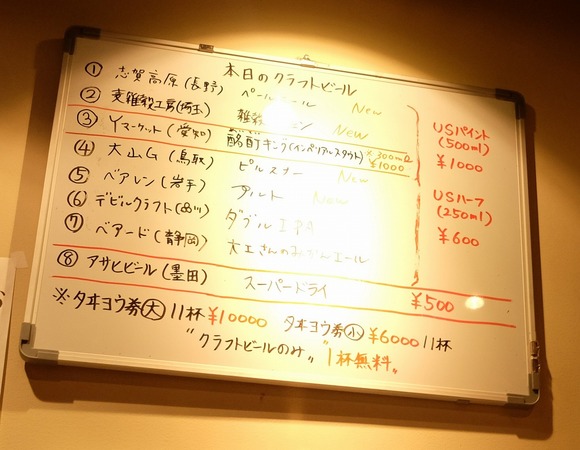 本日のクラフトビール
① 志賀高原(長野) ペールエール New
② 麦雑穀工房(埼玉) 雑穀 New
③ Yマーケット(愛知) 酩酊キング(インペリアルスタウト) ※300ml ¥1000
④ 大山G(鳥取) ピルスナー New
⑤ ベアレン(岩手) アルト New
⑥ デビルクラフト(品川) ダブルIPA
⑦ ベアード(静岡) 大工さんのみかんエール
USパイント
(500ml)
¥1000
USハーフ
(250ml)
¥600
⑧ アサヒビール(墨田) スーパードライ ¥500
※タ本ヨウ券大 11杯 ¥10000 タ本ヨウ券小 ¥6000 11杯
"クラフトビールのみ" 1杯無料。